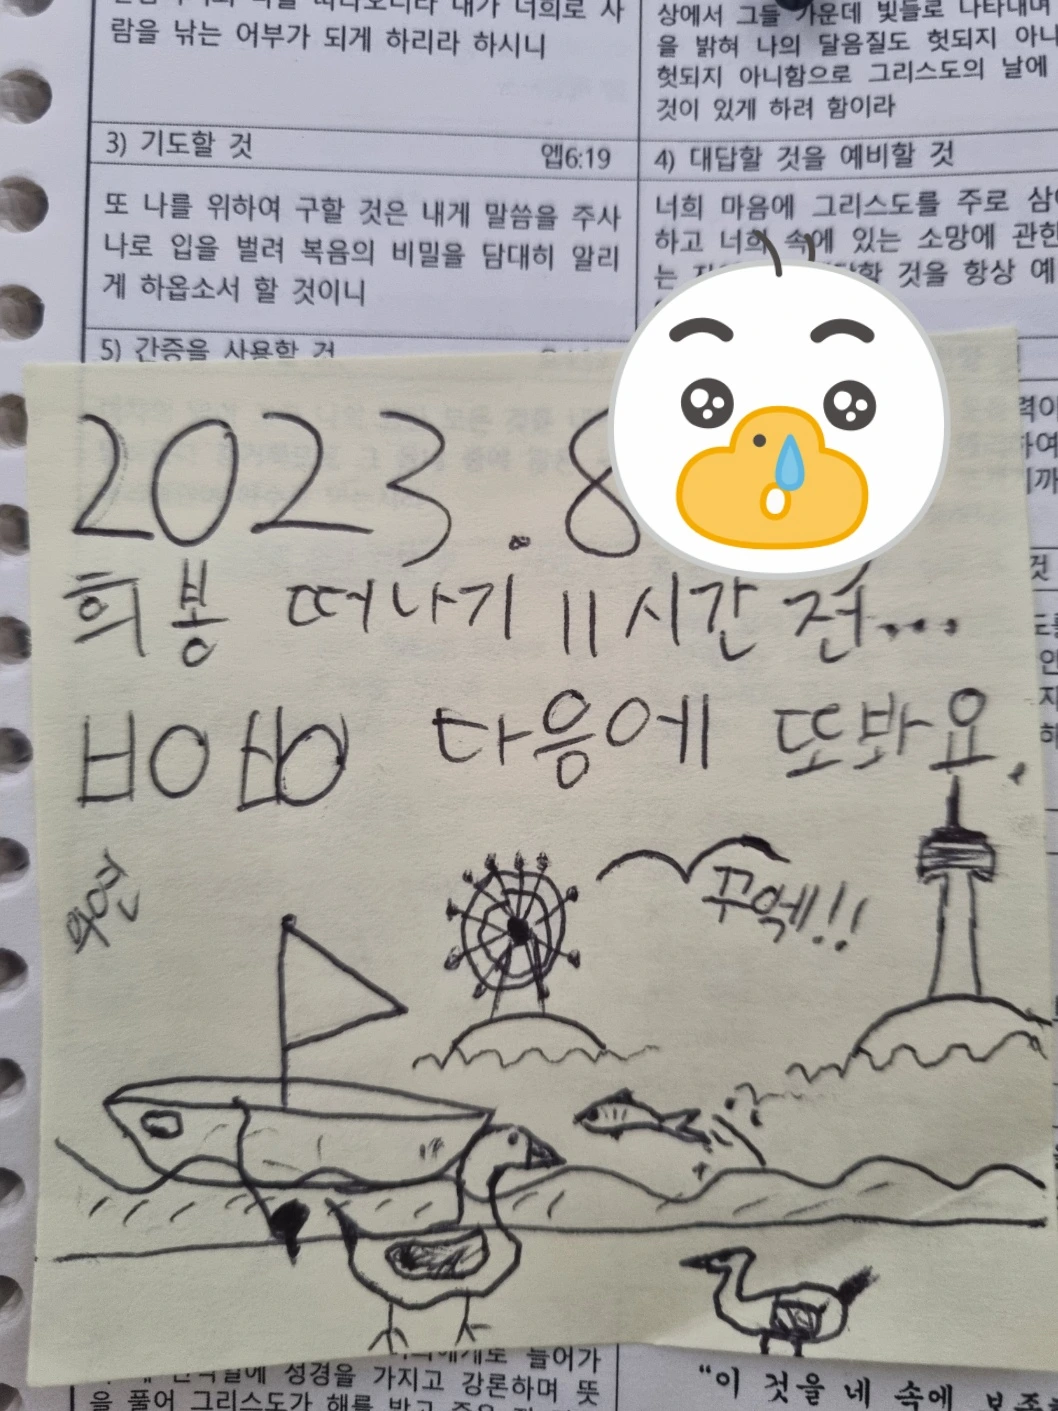 람을 낚는 어부가 되게 하리라 하시니
상에서 그들 가운데 빛들로 나타내며
을 밝혀 나의 달음질도 헛되지 아니
헛되지 아니함으로 그리스도의 날에
것이 있게 하려 함이라
3) 기도할 것 엡6:19
4) 대답할 것을 예비할 것
또 나를 위하여 구할 것은 내게 말씀을 주사
나로 입을 벌려 복음의 비밀을 담대히 알리
게 하옵소서 할 것이니
너희 마음에 그리스도를 주로 삼
하고 너희 속에 있는 소망에 관한
는 것을 항상 예
5) 간증을 사용할 것
2023.8
희봉 떠나기 11시간 전...
다음에 또봐요.
꾸엑!!
들어가
성경을 가지고 강론하며 뜻
을 풀어 그리스도가 해를 받고
"이 것을 네 속에